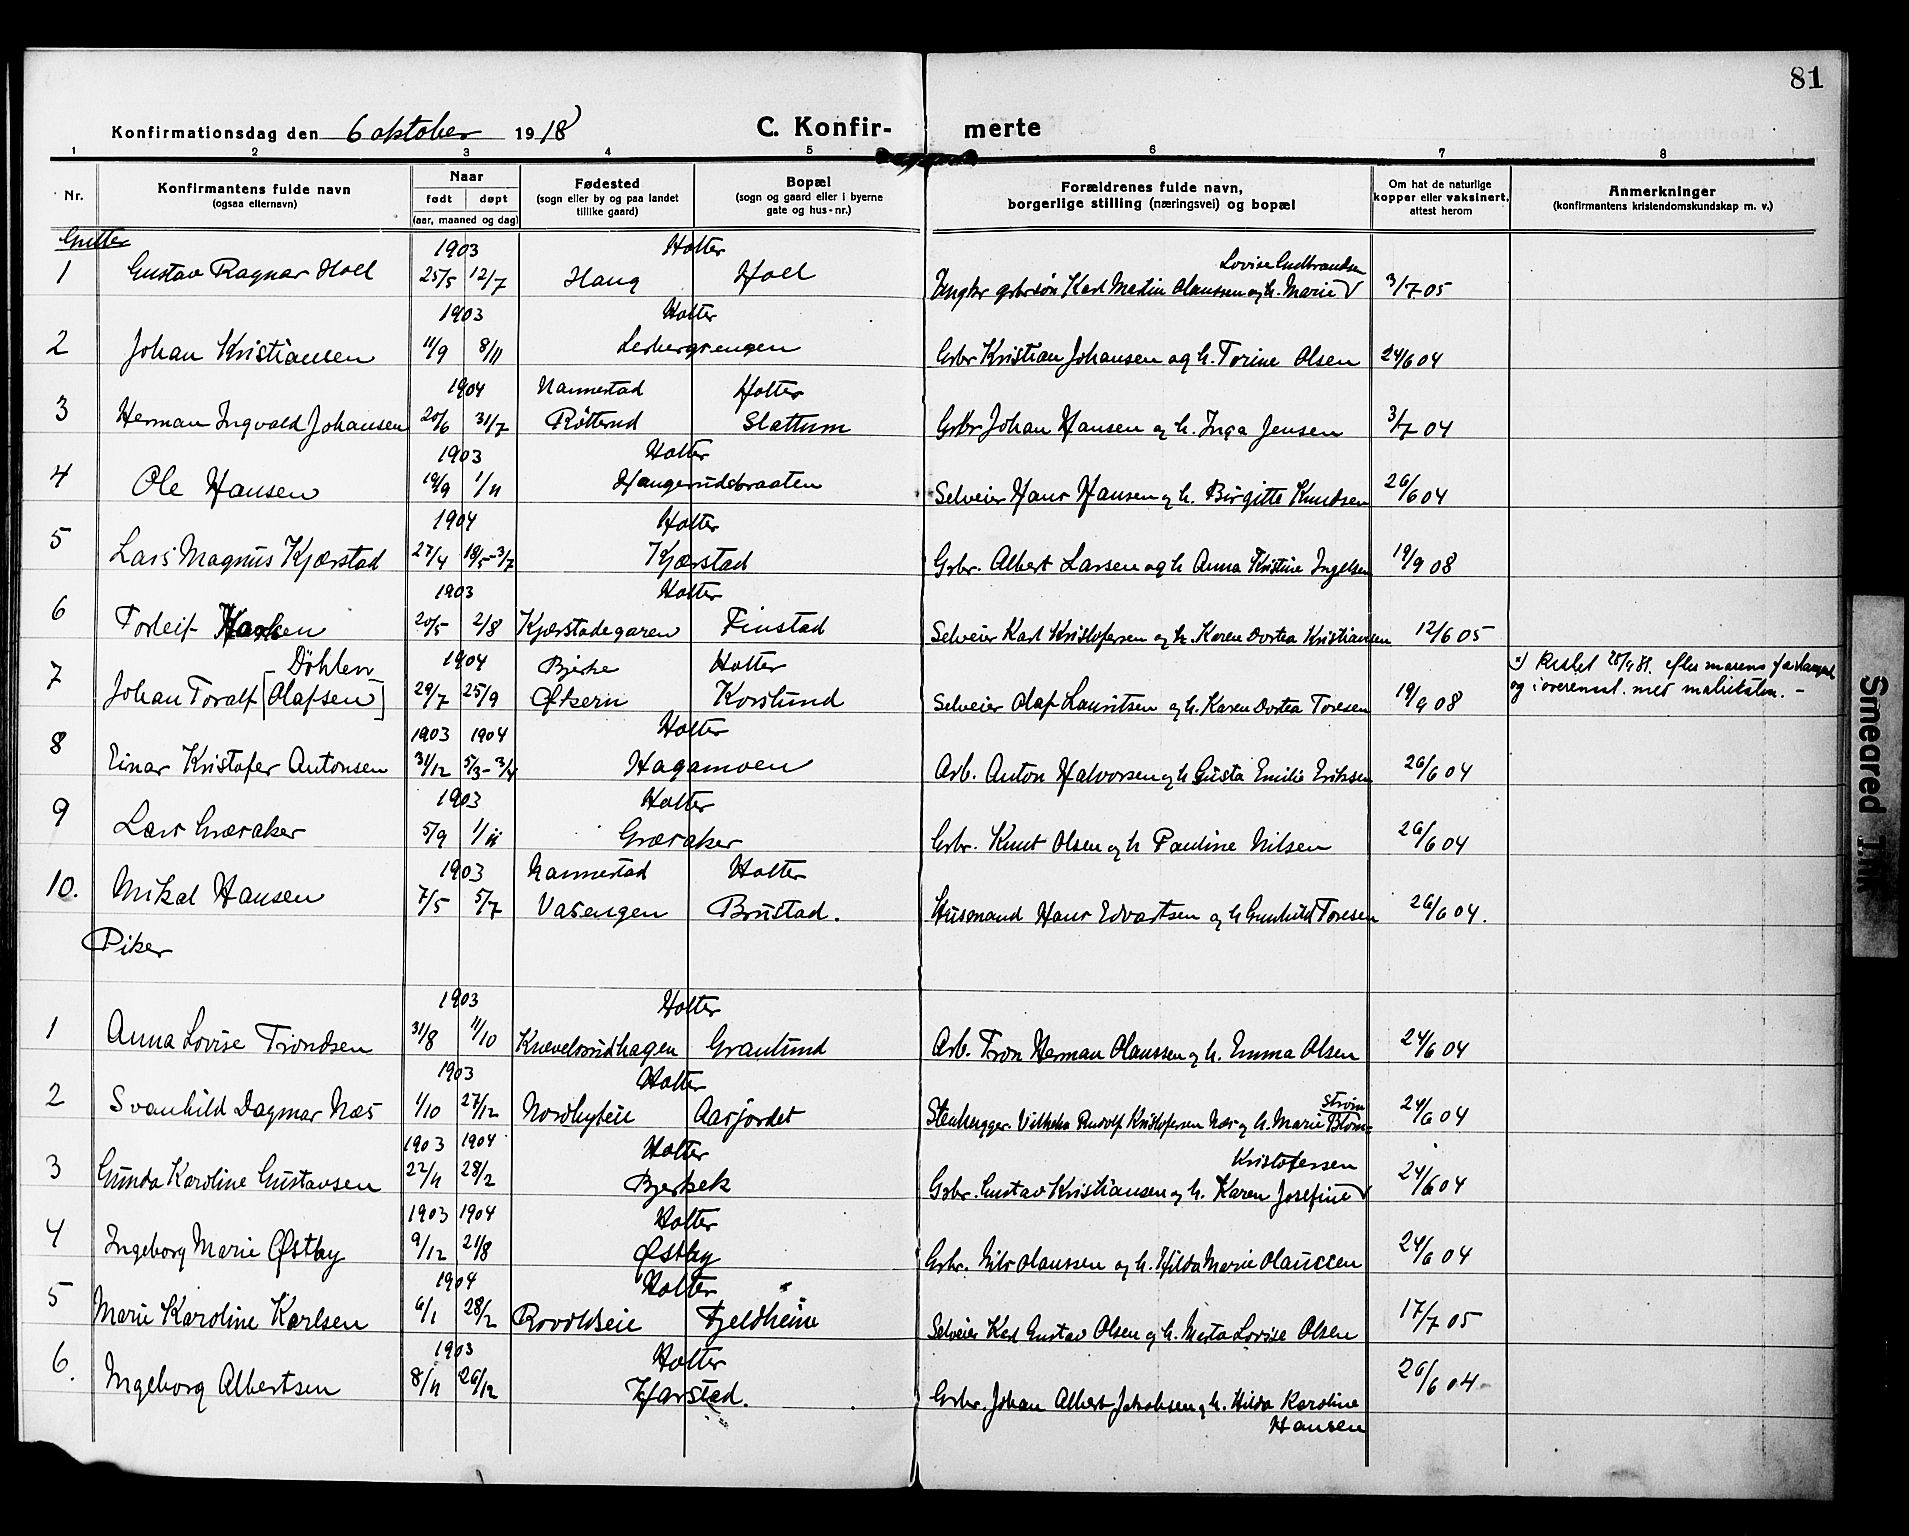 81
Konfirmationsdag den 6 oktober 1918
C. Konfirmerte
1 2 3 4 5 6 7 8
Nr.
Konfirmantens fulde navn
(ogsaa efternavn)
Naar
født døpt
(aar, maaned og dag)
Fødested
(sogn eller by og paa landet
tillike gaard)
Bopæl
(sogn og gaard eller i byerne
gate og hus-nr.)
Forældrenes fulde navn,
borgerlige stilling (næringsvei) og bopæl
Om hat de naturlige
kopper eller vaksinert,
attest herom
Anmerkninger
(konfirmantens kristendomskundskap m. v.)
Gutter
1903 Holter Lovise Gudbrandsen
1 Gustav Ragnar Holl 25/5 12/7 Haug Holl Ungkr gbrsøn Karl Martin Olaussen og h. Marie √ 3/7 05
1903 Holter
2 Johan Kristiansen 11/9 8/11 Lerbergrengen Grbr Kristian Johansen og h. Torine Olsen 24/6 04
1904 Nannestad Holter
3 Herman Ingvald Johansen 20/6 31/7 Røtterud Slattum Grbr Johan Hansen og h. Inga Jensen 3/7 04
1903 Holter
4 Ole Hansen 19/9 1/11 Haugerudsbraaten Selveier Hans Hansen og h. Birgitte Knudsen 26/6 04
1904 Holter
5 Lars Magnus Kjærstad 27/4 18/5-3/7 Kjærstad Grbr. Albert Larsen og h Anna Kristine Ingelsen 19/9 08
1903 Holter
6 Torleif Karlsen 20/5 2/8 Kjærstadegaren Finstad Selveier Karl Kristofersen og h. Karen Dortea Kristiansen 12/6 05
Døhlen 1904 Bjerke Holter
7 Johan Toralf [Olafsen] 29/7 25/9 Korslund Selveier Olaf Lauritsen og h. Karen Dortea Toresen 19/9 08
og i overensst. med
1903 1904 Holter
8 Einar Kristofer Antonsen 31/12 5/3-3/4 Hagamoen Arb. Anton Halvorsen og h Gusta Emilie Eriksen 26/6 04
1903 Holter
9 Lars Græsaker 5/9 1/11 Græsaker Grbr. Knut Olsen og h Pauline Nilsen 26/6 04
1903 Nannestad Holter
10. Mikal Hansen 7/5 5/7 Vasengen Brustad. Husmand Hans Edvartsen og h Gunhild Toresen 26/6 04.
Piker
1903 Holter
1 Anna Lovise Trondsen 31/8 11/10 Knevelsrudhagen Granlund Arb. Tron Herman Olaussen og h. Emma Olsen 24/6 04
1903 Holter Strøm
2 Svanhild Dagmar Næs 1/10 27/12 Nordbyeie Aasjordet Stenhugger Vilhelm Rudolf Kristofersen Næs og h. Marie Blom- 24/6 04
1903 1904 Holter Kristofersen
3 Gunda Karoline Gustavsen 22/11 28/2 Bjerkek Grbr. Gustav Kristiansen og h. Karen Josefine √ 24/6 04
1903 1904 Holter
4 Ingeborg Marie Østby 9/12 21/8 Østby Grbr. Nils Olaussen og h. Hilda Marie Olaussen 24/6 04
1904 Holter
5 Marie Karoline Karlsen 6/1 28/2 Rovoldseie Fjeldheim Selveier Karl Gustav Olsen og h. Marta Lovise Olsen 17/7 05
1903 Holter
6. Ingeborg Albertsen 8/11 26/12 Kjærstad. Grbr. Johan Albert Jakobsen og h. Hilda Karoline 26/6 04
Hansen
Smeared Ink